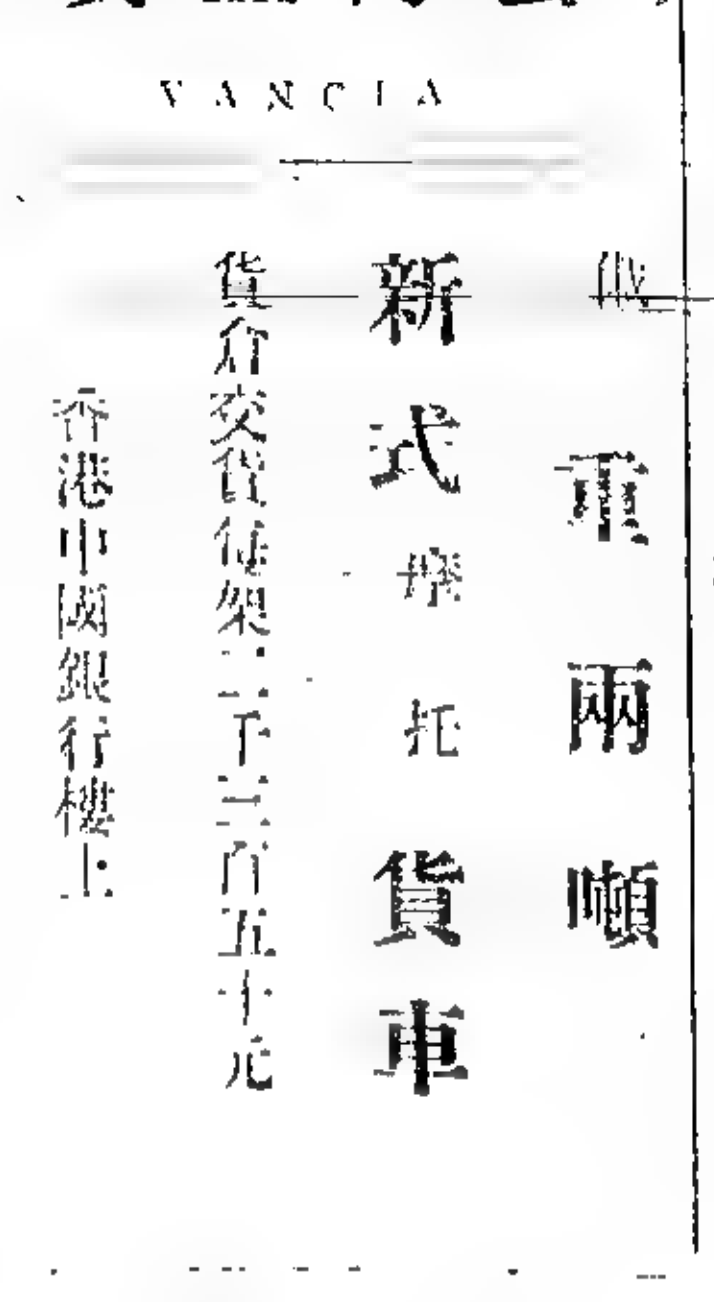 VANCIA
重兩噸
新式摩托貨車
貨倉交貨每架二千三百五十元
香港中國銀行樓上